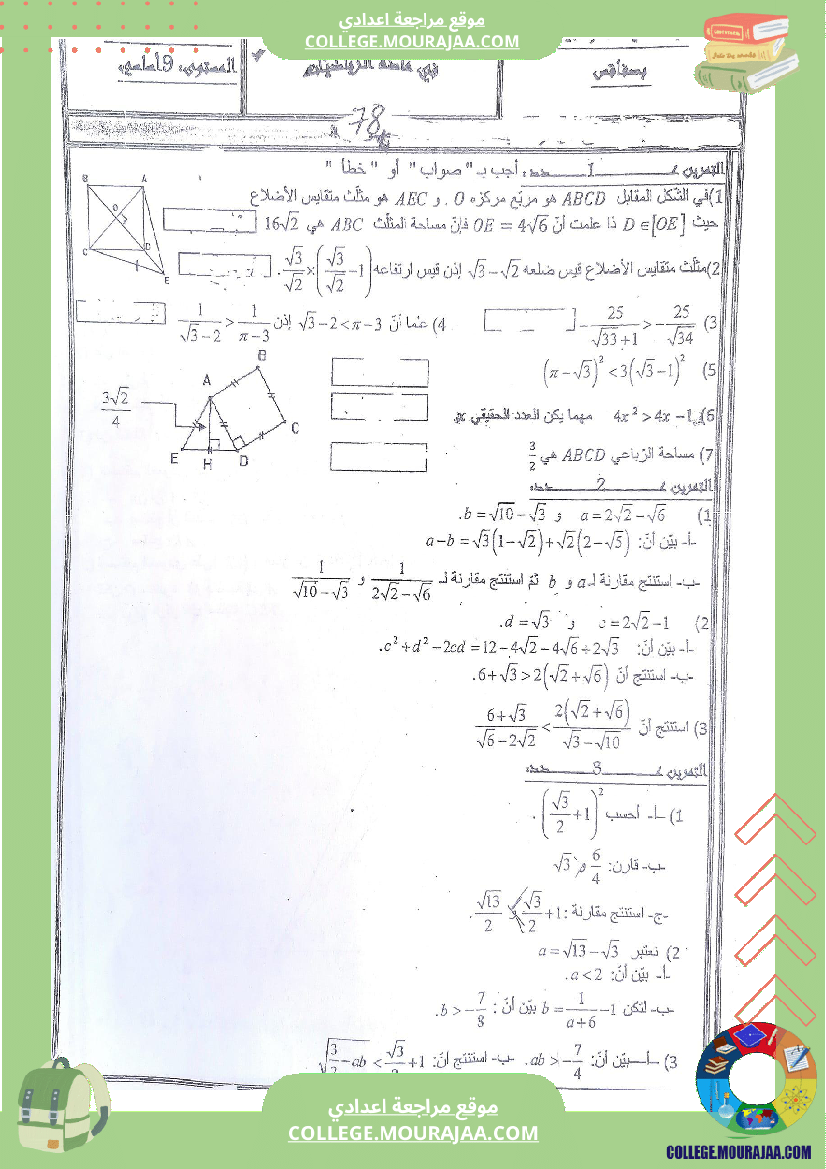 موقع مراجعة اعدادي
COLLEGE.MOURAJAA.COM
بصفاقس
في مادة الرياضيات
المستوى: 9 أساسي
78
التمرين عـ 1 ـدد: أجب بـ "صواب" أو "خطأ"
1) في الشكل المقابل ABCD هو مربّع مركزه O . و AEC هو مثلّث متقايس الأضلاع
حيث D∈[OE] ذا علمت أنّ OE = 4√6 فإنّ مساحة المثلّث ABC هي 16√2
B A O C D E
2) مثلّث متقايس الأضلاع قيس ضلعه √3−√2 إذن قيس ارتفاعه √3/√2×(√3/√2−1).
3) −25/(√33+1) > −25/√34
4) عما أنّ √3−2<π−3 إذن 1/(√3−2) > 1/(π−3)
5) (π−√3)² < 3(√3−1)²
6) 4x² > 4x−1 مهما يكن العدد الحقيقي x
7) مساحة الرّباعي ABCD هي 3/2
B A C E H D
3√2/4
التمرين عـ 2 ـدد:
1) a=2√2−√6 و b=√10−√3.
-أ- بيّن أنّ: a−b=√3(1−√2)+√2(2−√5)
-ب- استنتج مقارنة لـ a و b ثمّ استنتج مقارنة لـ 1/(2√2−√6) و 1/(√10−√3)
2) c=2√2−1 و d=√3.
-أ- بيّن أنّ: c²+d²−2cd=12−4√2−4√6+2√3.
-ب- استنتج أنّ 6+√3>2(√2+√6).
3) استنتج أنّ (6+√3)/(√6−2√2) < 2(√2+√6)/(√3−√10)
التمرين عـ 3 ـدد:
1) -أ- أحسب (√3/2+1)².
-ب- قارن: 6/4 و √3
-ج- استنتج مقارنة: √3/2+1 و √13/2.
2) نعتبر a=√13−√3
-أ- بيّن أنّ: a<2.
-ب- لتكن b=1/(a+6)−1 بيّن أنّ: b>−7/8.
3) -أ- بيّن أنّ: ab>−7/4. -ب- استنتج أنّ: √(3/2−ab) < √3/2+1
موقع مراجعة اعدادي
COLLEGE.MOURAJAA.COM
COLLEGE.MOURAJAA.COM